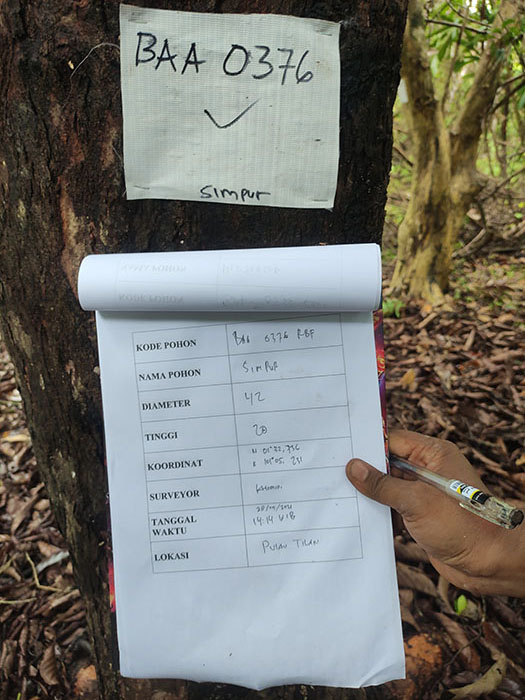 BAA 0376
simpur
KODE POHON BAA 0376 RBF
NAMA POHON SIMPUR
DIAMETER 42
TINGGI 20
KOORDINAT N 01°22,736
E 101°05.
SURVEYOR
TANGGAL
WAKTU 14:14 WIB
LOKASI PULAU TILAN